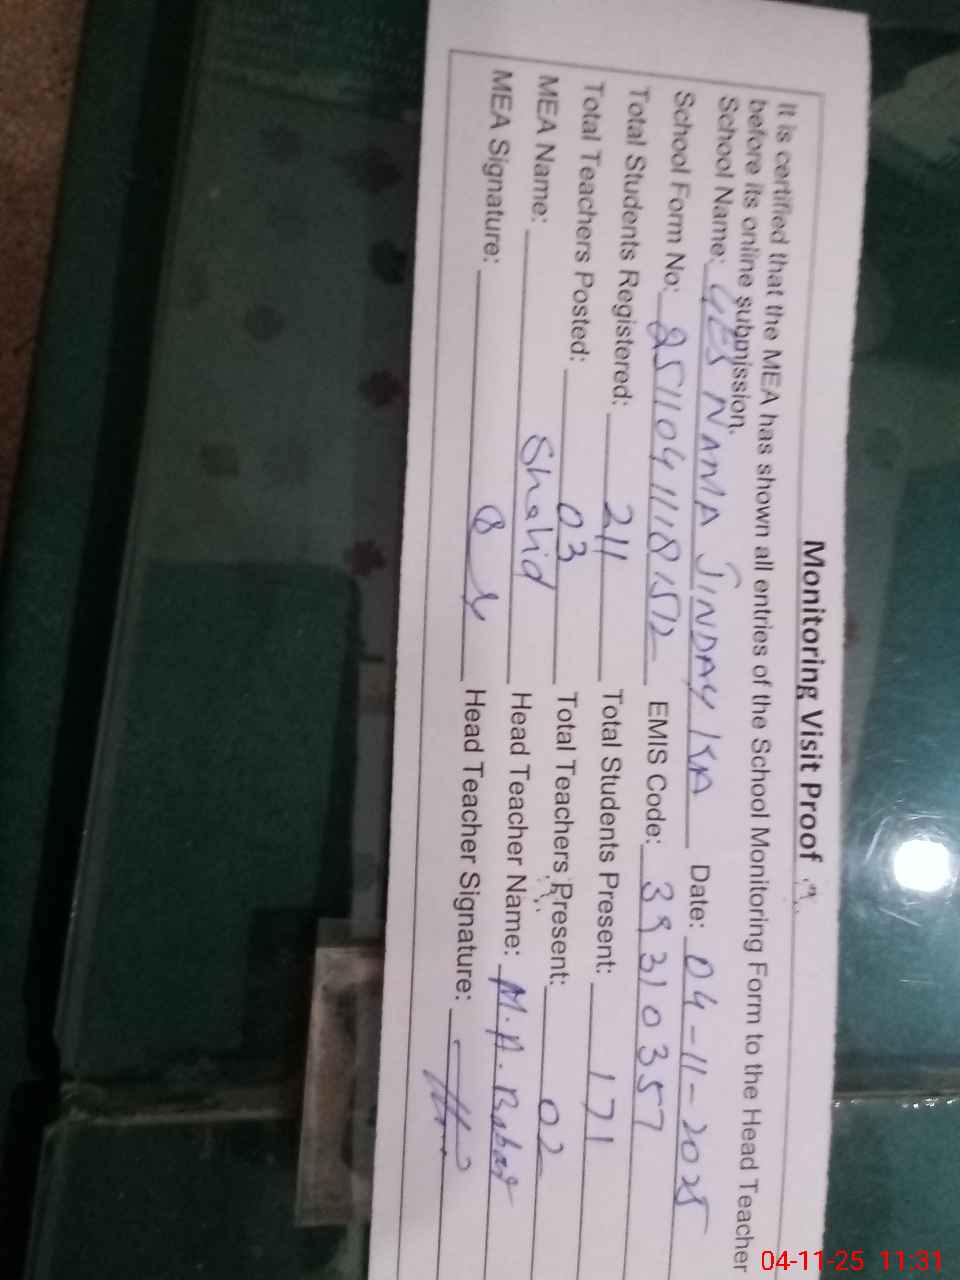 Monitoring Visit Proof
It is certified that the MEA has shown all entries of the School Monitoring Form to the Head Teacher
before its online submission.
School Name: GES NAMA JINDAY KA Date: 04-11-2025
School Form No: 25110411181512 EMIS Code: 39310357
Total Students Registered: 211 Total Students Present: 171
Total Teachers Posted: 03 Total Teachers Present: 02
MEA Name: Shahid Head Teacher Name: M.A. Babar
MEA Signature: Head Teacher Signature:
04-11-25 11:31